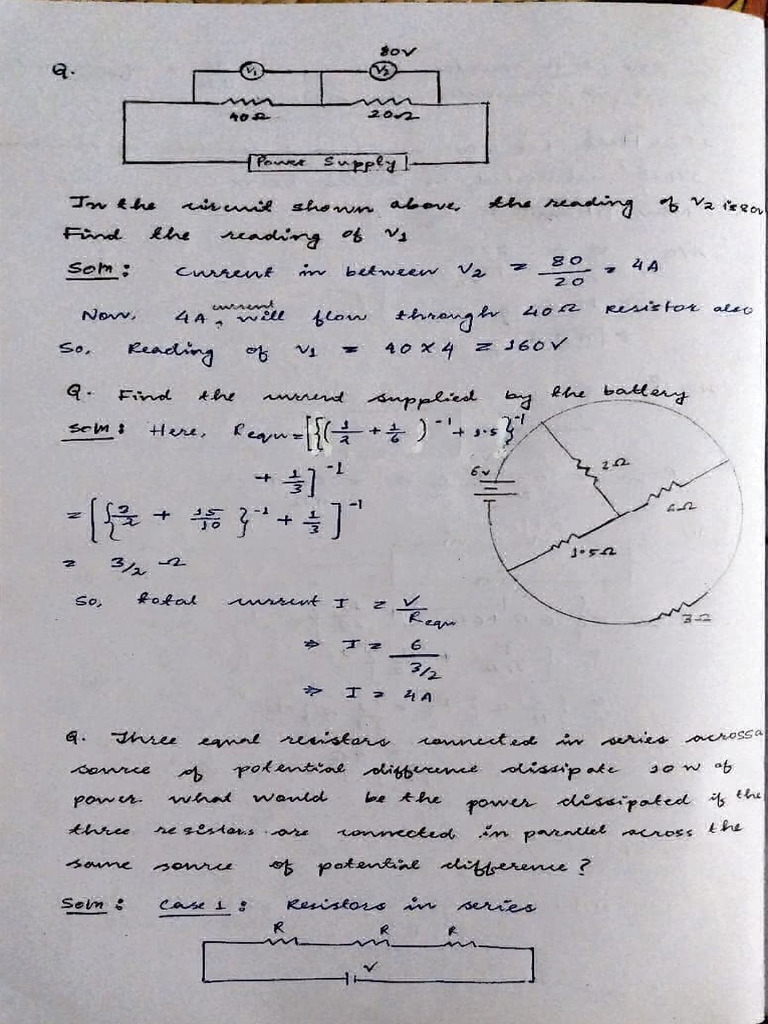 80V
Q.
V1 V2
40Ω 20Ω
Power Supply
In the circuit shown above, the reading of V2 is 80V
Find the reading of V1
Soln: Current in between V2 = 80/20 = 4A
Now, 4A current will flow through 40Ω resistor also
So, Reading of V1 = 40 × 4 = 160V
Q. Find the current supplied by the battery
Soln: Here, Requ = [{(1/2 + 1/6)^-1 + 1.5}^-1
+ 1/3]^-1
6V
2Ω
6Ω
1.5Ω
3Ω
= [{3/2 + 15/10}^-1 + 1/3]^-1
= 3/2 Ω
So, total current I = V/Requ
⇒ I = 6/(3/2)
⇒ I = 4A
Q. Three equal resistors connected in series across a
source of potential difference dissipate 10 W of
power. What would be the power dissipated if the
three resistors are connected in parallel across the
same source of potential difference?
Soln: Case 1: Resistors in series
R R R
V